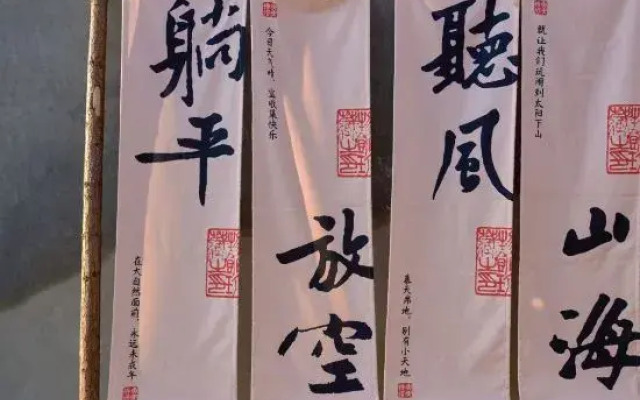 躺平
在大自然面前，永远未成年
今日天气晴，宜收集快乐
放空
聽風
幕天席地。别有小天地
就让我们玩闹到太阳下山
山海